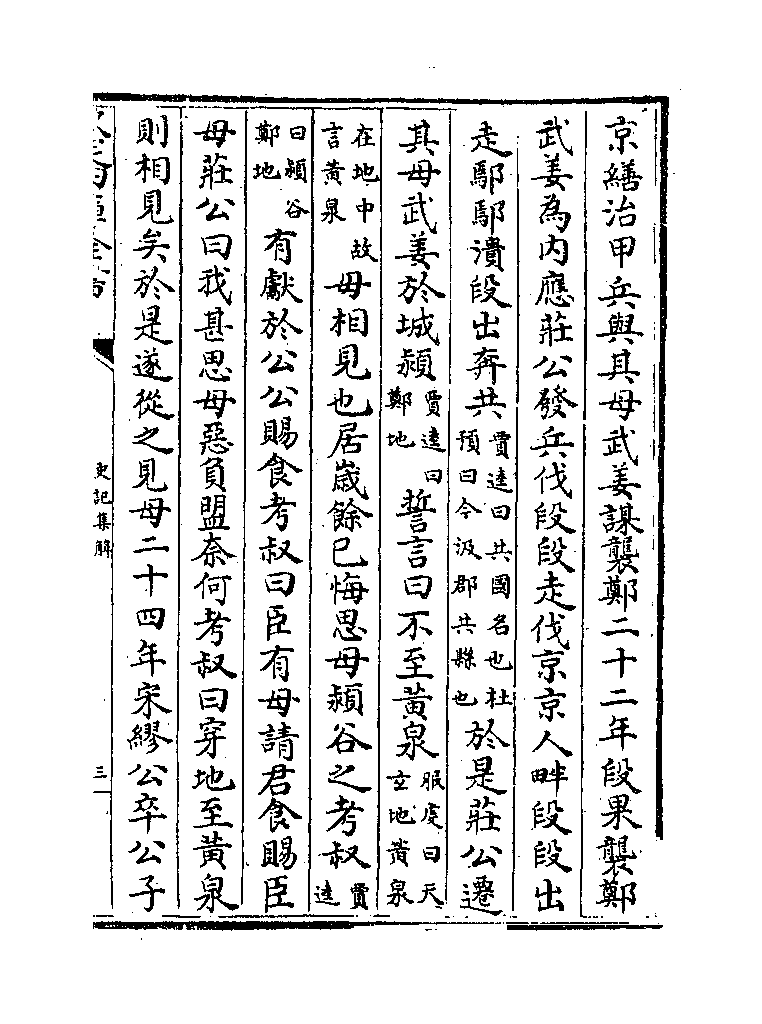 京繕治甲兵與其母武姜謀襲鄭二十二年段果襲鄭
武姜為内應莊公發兵伐段段走伐京京人畔段段出
走鄢鄢潰段出奔共賈逵曰共國名也杜預曰今汲郡共縣也於是莊公遷
其母武姜於城潁賈逵曰鄭地誓言曰不至黄泉服虔曰天玄地黄泉
在地中故言黄泉毋相見也居歲餘已悔思母潁谷之考叔賈逵
曰潁谷鄭地有獻於公公賜食考叔曰臣有母請君食賜臣
母莊公曰我甚思母惡負盟奈何考叔曰穿地至黄泉
則相見矣於是遂從之見母二十四年宋繆公卒公子
史記集解
三